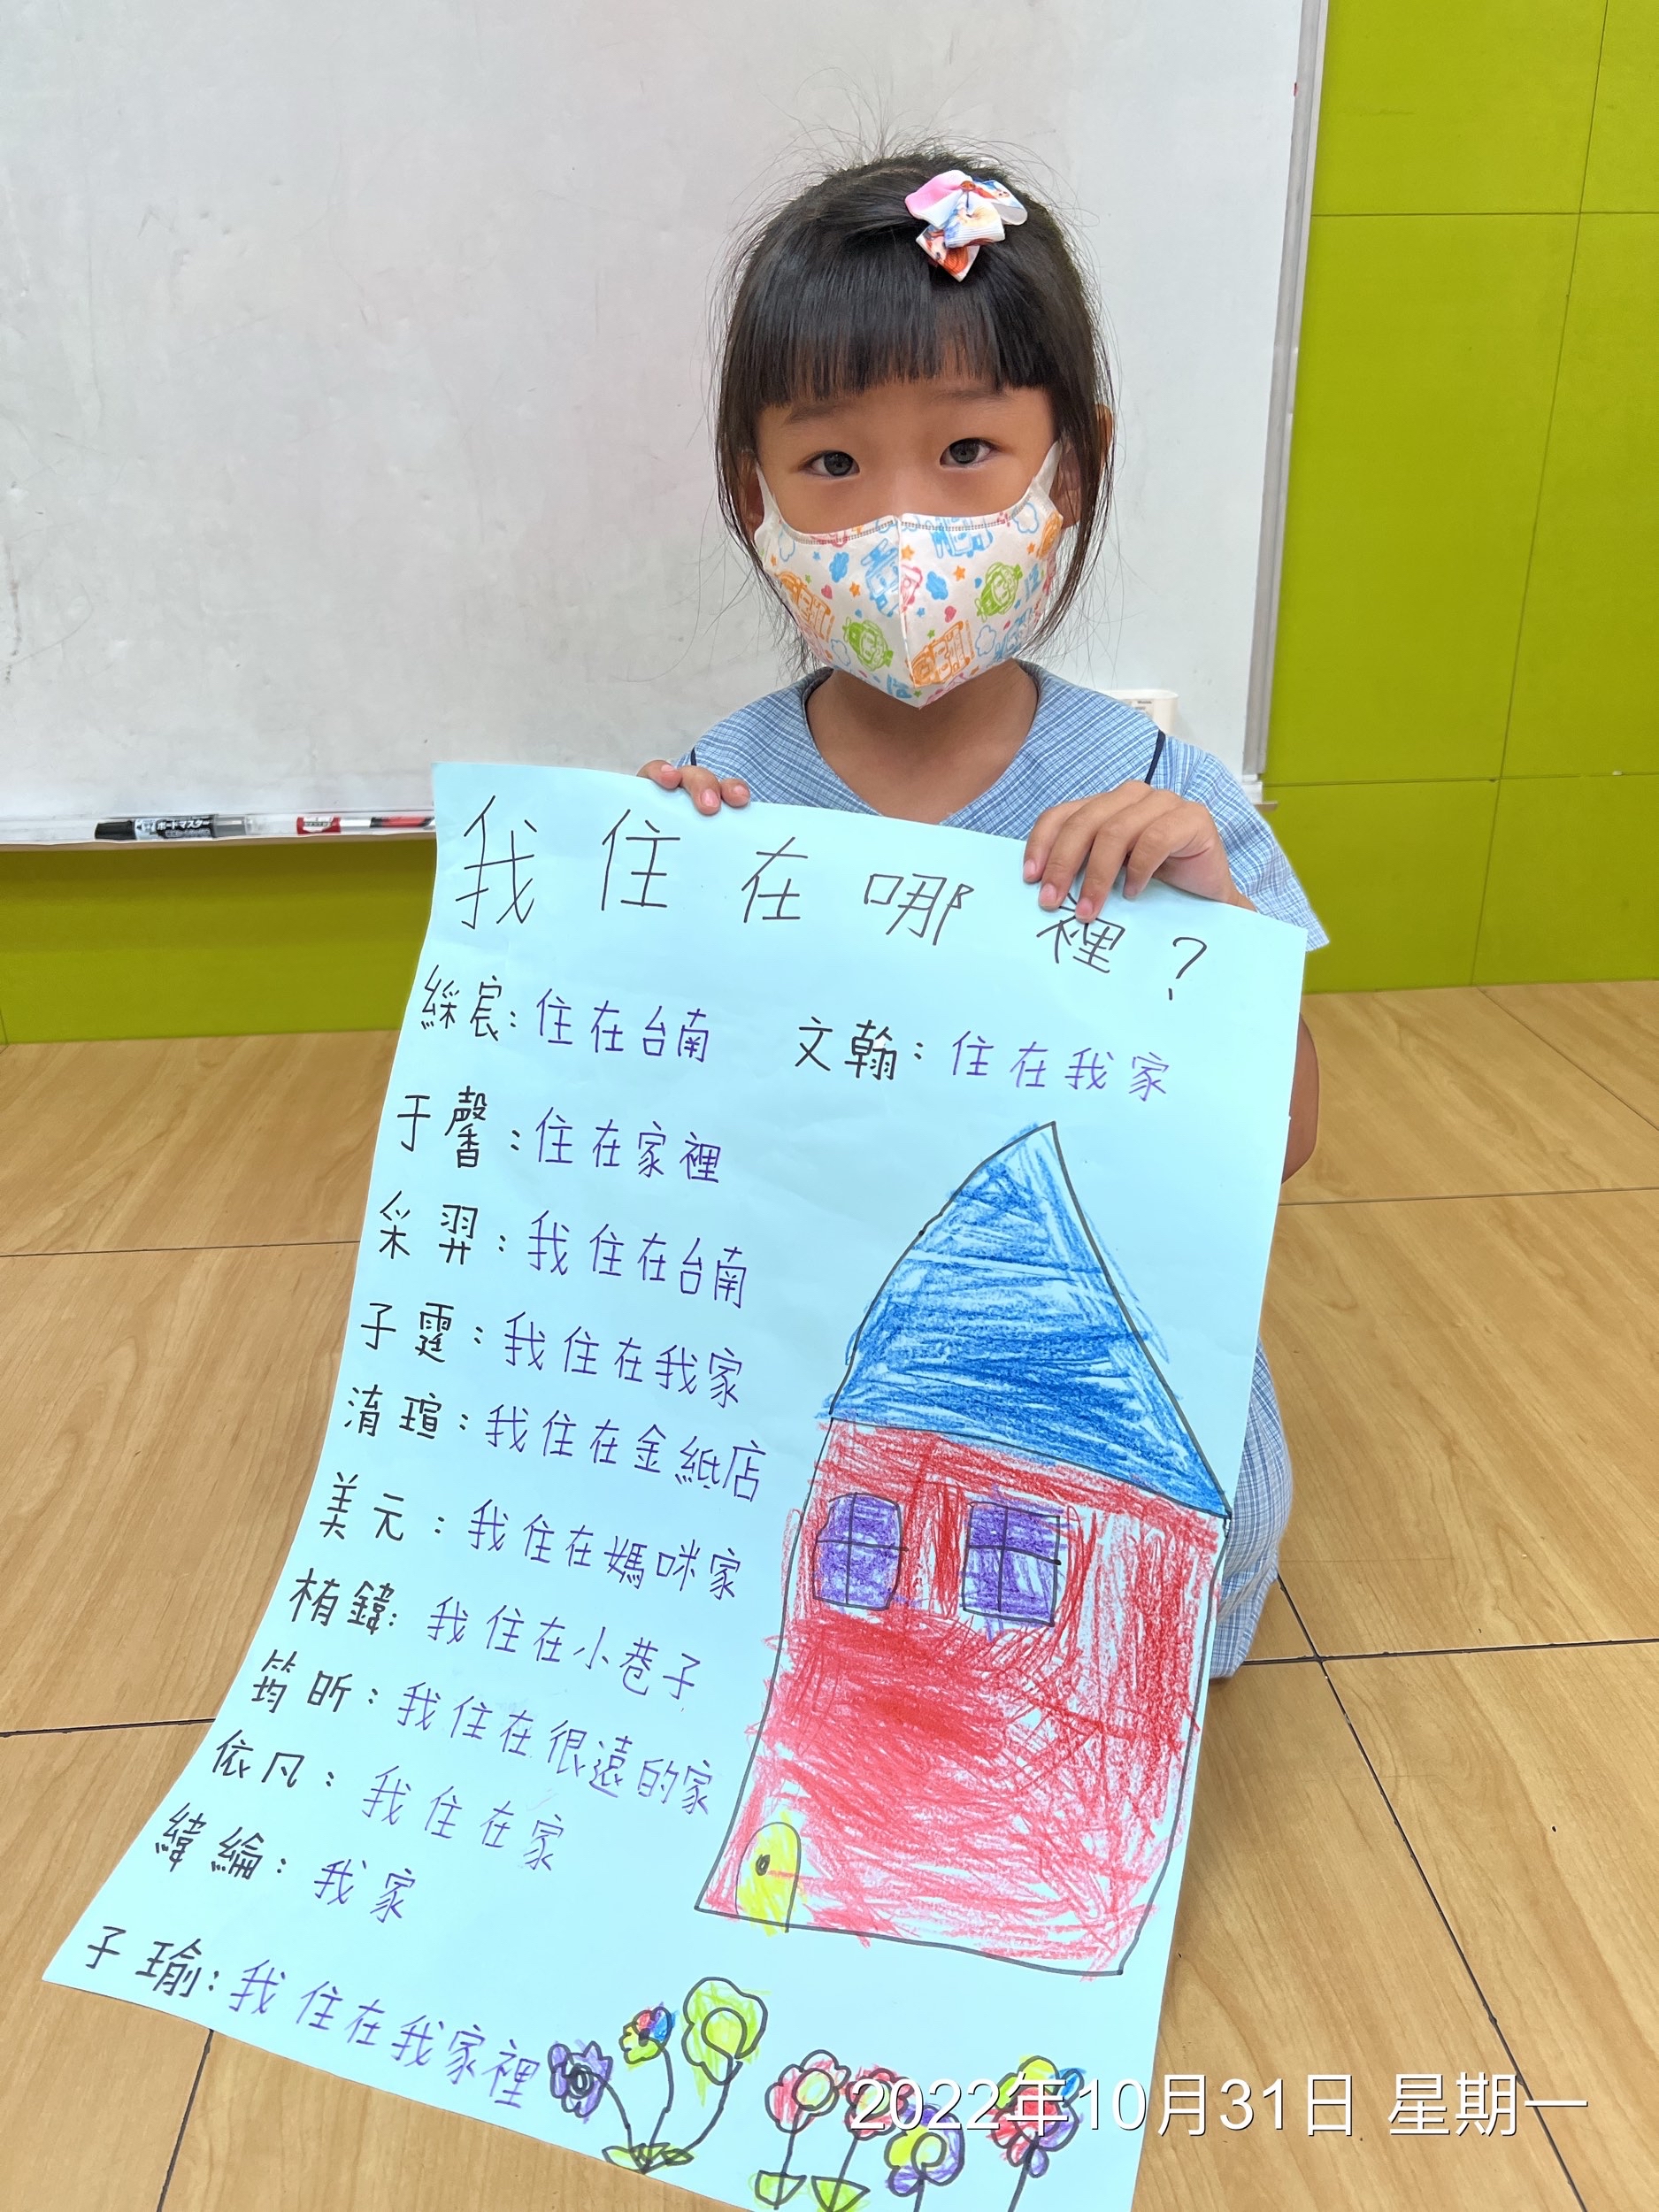 我住在哪裡？
綵宸：住在台南
文翰：住在我家
于馨：住在家裡
采羿：我住在台南
子霆：我住在我家
淯瑄：我住在金紙店
美元：我住在媽咪家
栯鍏：我住在小巷子
筠昕：我住在很遠的家
依凡：我住在家
緯綸：我家
子瑜：我住在我家裡
2022年10月31日 星期一
ボードマスター